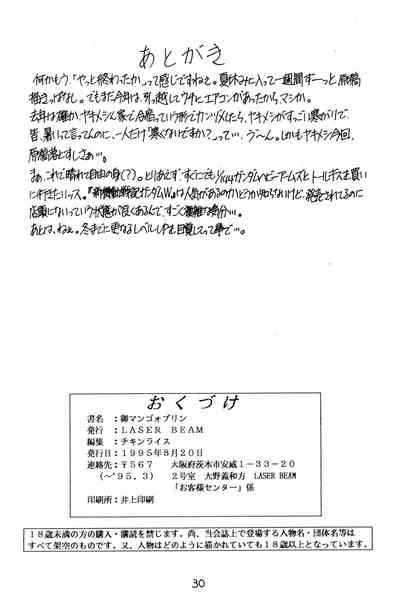 あとがき
何かもう「やっと終わったか」って感じですねェ。夏休みに入って一週間ずーっと原稿
描きっぱなし。でもまだ今年は、引っ越してウチにエアコンがあったから、マシか。
去年は確か、ヤキメシん家で合宿っていう形でカンヅメしたら、ヤキメシがすっごい寒がりで、
皆、暑いって言ってんのに、一人だけ「寒くないですか?」って…。う〜ん。しかもヤキメシ今回、
原稿者とすしさぁ…。
さぁ、これで晴れて自由の身(?)。とりあえず、すぐにでも1/144ガンダムヘビーアームズとトールギスを買い
に行きたいッス。『新機動戦記ガンダムW』は人気があるのかどうか知らないけど、発売されてるのに
店頭にないっていう状態が良くあるんで、すごく複雑な気分…。
あとは、ねェ。冬までに更なるレベルUPを目指してって事で…。
おくづけ
書名 : 御マンゴォプリン
発行 : LASER BEAM
編集 : チキンライス
発行日 : 1995年8月20日
連絡先 : 〒567 大阪府茨木市安威1-33-20
(〜'95.3) 2号室 大野義和方 LASER BEAM
「お客様センター」係
印刷所 : 井上印刷
18歳未満の方の購入・購読を禁じます。尚、当会誌上で登場する人物名・団体名等は
すべて架空のものです。又、人物はどのように描かれていても18歳以上となっています。
30